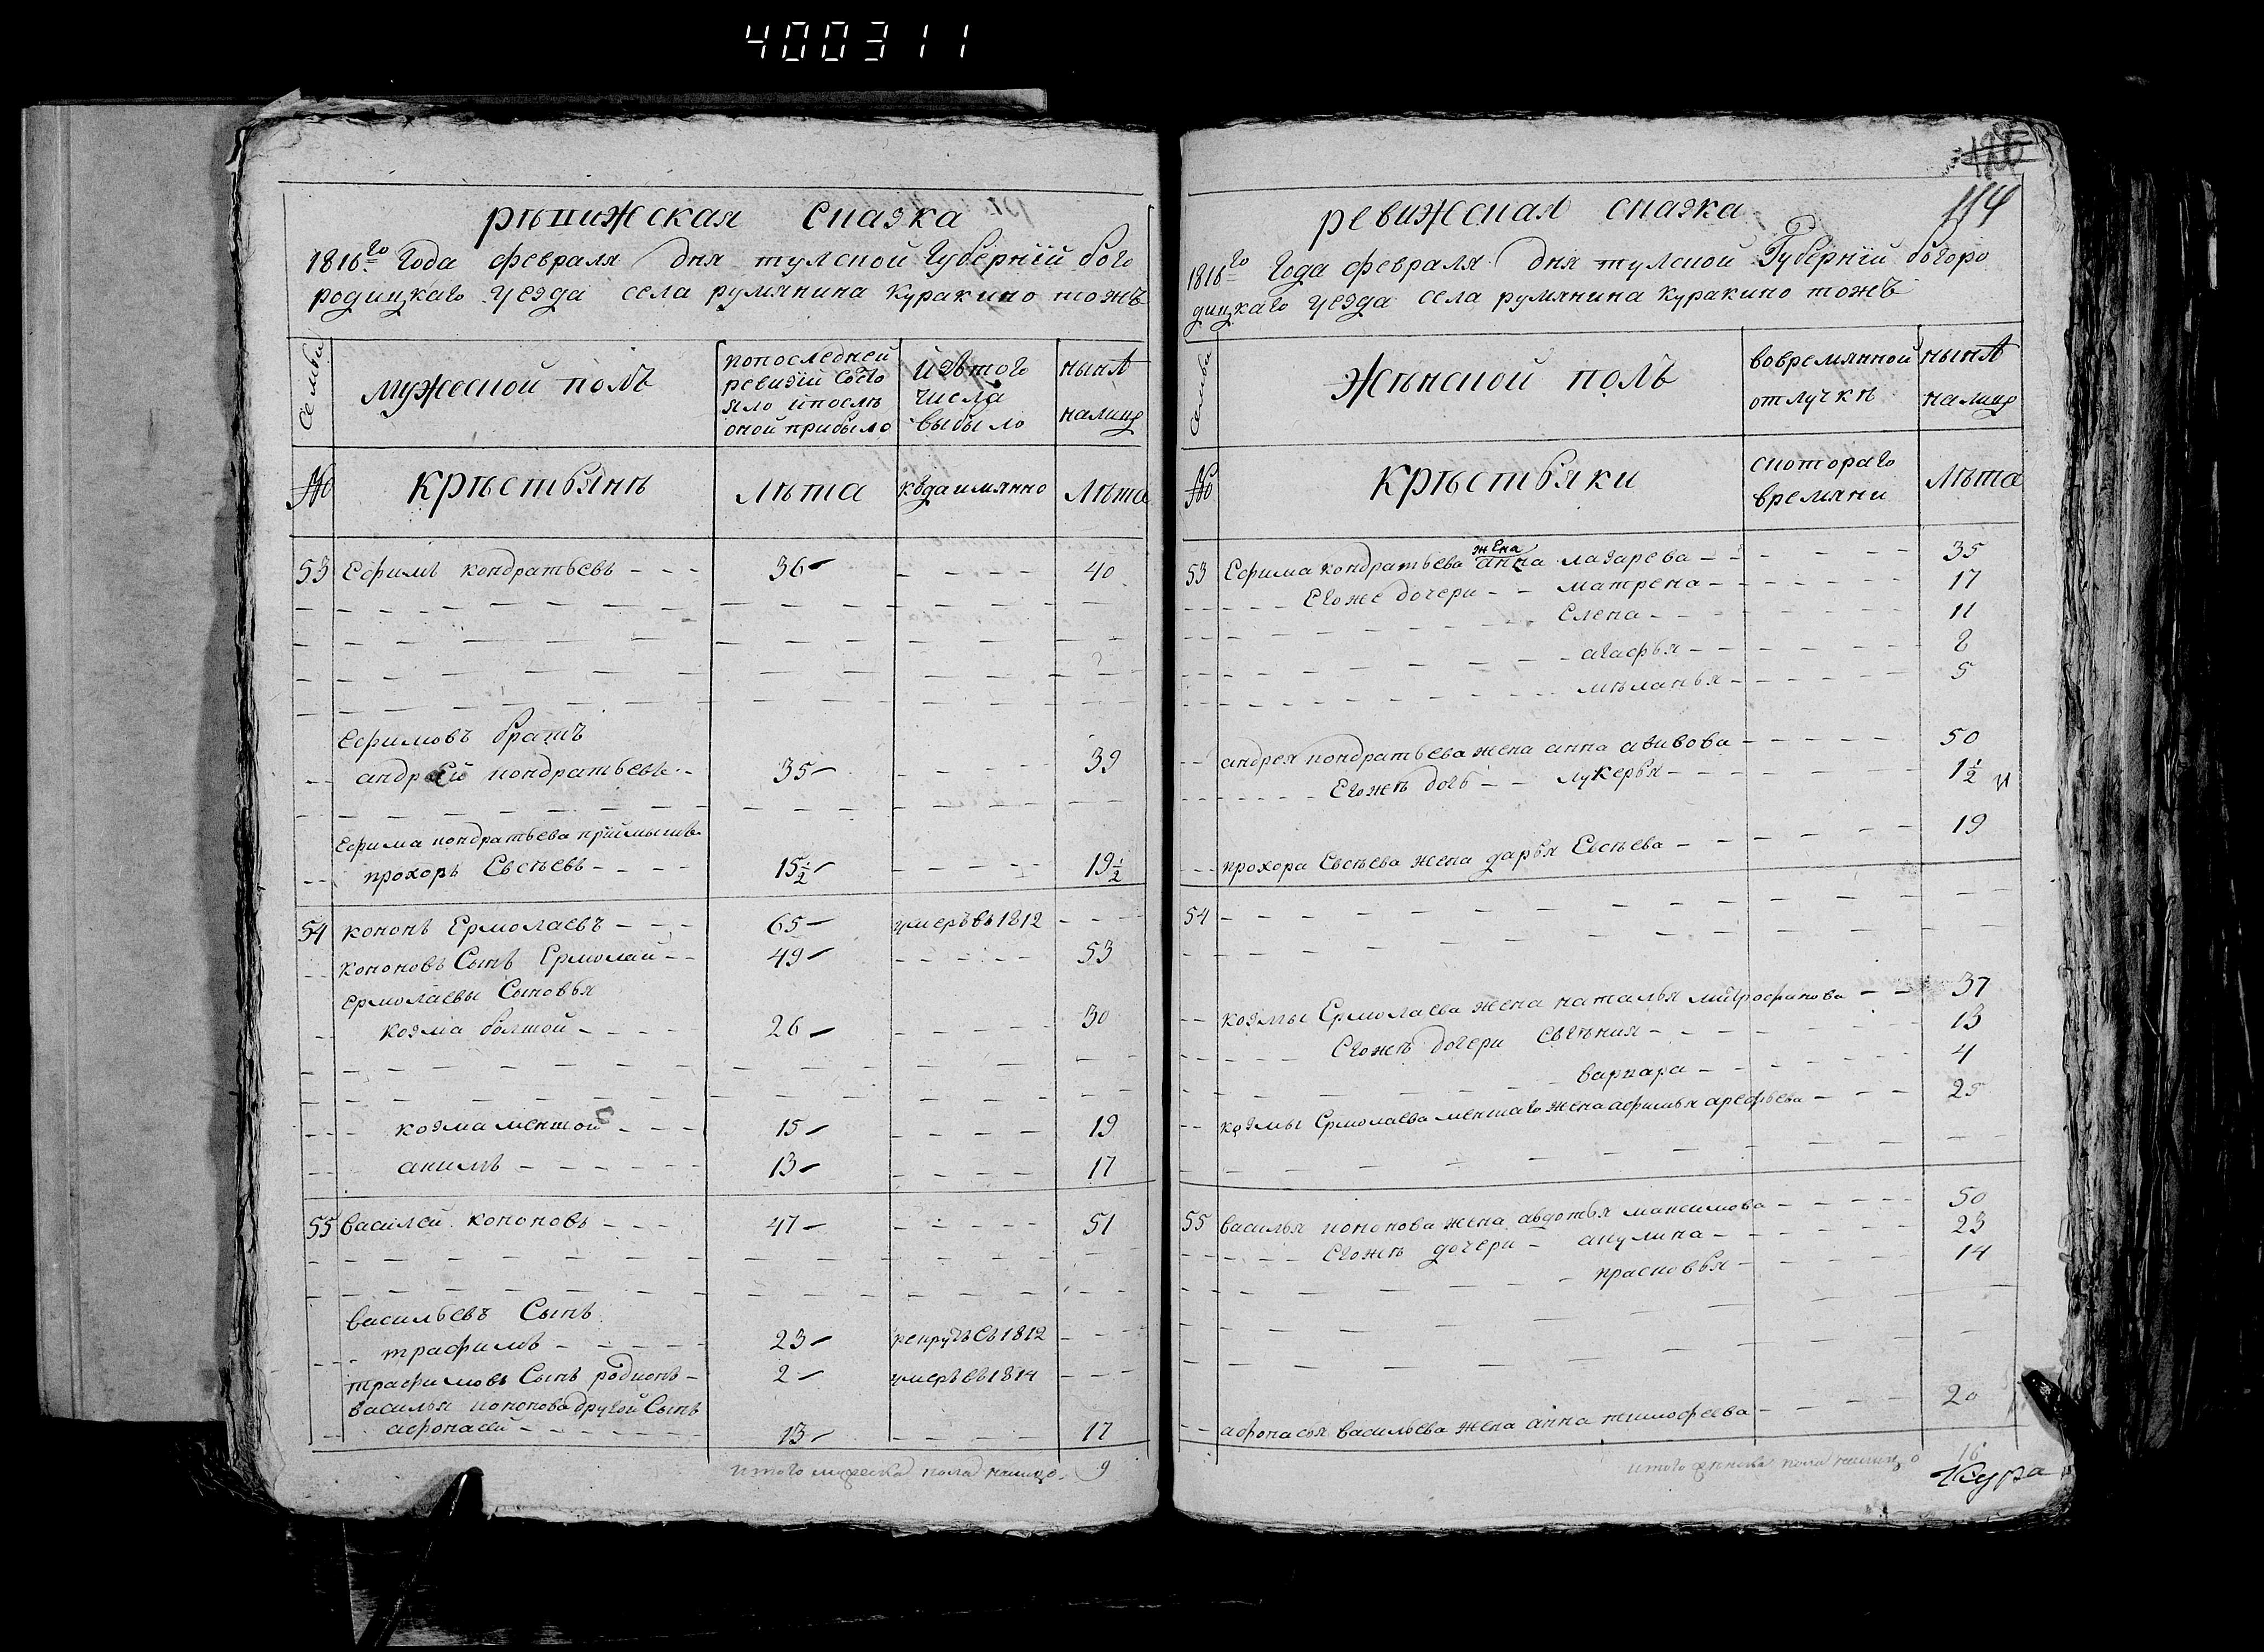 400311
рѣвижская сказка
1816го года февраля дня тулской губернiй бого
родицкаго уезда села румянина куракино тожъ
семьи
мужеской полъ
попоследней ревизiй состо яло ипослѣ оной прибыло
изътого числа выбыло
нынѣ налицо
№
крѣстьянѣ
лѣта
кѣда имянно
лѣта
53 Ефимъ кондратьевъ - - - 36 - - - - 40
Ефимовъ братъ
андрей кондратьевъ - 35 - - - - 39
Ефима кондратьева прiимышъ
прохоръ Евсѣевъ - - - - 15½ - - - - 19½
54 кононъ Ермолаевъ - - - 65 умеръ въ 1812 - - -
кононовъ Сынъ Ермолай - - 49 - - - - 53
Ермолаевы Сыновья
козма болшой - - - - 26 - - - - 30
козма меншой - - - 15 - - - - 19
акимъ - - - - - - 13 - - - - 17
55 василей кононовъ - - - 47 - - - - 51
васильевъ Сынъ
трафимъ - - - - - 23 рекрутъ въ 1812 - - -
трафимовъ Сынъ родионъ - 2 умеръ въ 1814 - - -
василья кононова другой Сынъ
афонасей - - - - - - 13 - - - - 17
итого мужеска пола налицо 9
114
ревижская сказка
1816го года февраля дня тулской Губернiй богоро
дицкаго уезда села румянина куракино тожъ
семьи
Жѣнской полъ
вовремянной отлучкѣ
нынѣ налицо
№
крѣстьянки
скотораго времяни
лѣта
53 Ефима кондратьева жена анна лазарева - - - - - - 35
Егоже дочери - - матрена - - - - - - 17
Елена - - - - - - 11
агафья - - - - - - 8
мѣланья - - - - - - 5
андрея кондратьева жена анна авивова - - - - - 50
Егожѣ дочь - - лукерья - - - - - 1½
прохора Евсѣева жена дарья Евсѣева - - - - - - 19
54
козмы Ермолаева жена наталья митрофанова - - 37
Егожѣ дочери Евгѣния - - - - - - 13
варвара - - - - - - 4
козмы Ермолаева меншаго жена афимья арефьева - - - 25
55 василья кононова жена авдотья максимова - - - - - 50
Егожѣ дочери - акулина - - - - - - 23
прасковья - - - - 14
афонасья васильева жена анна тимофеева - - - - - 20
итого женска пола налицо 16
Кура